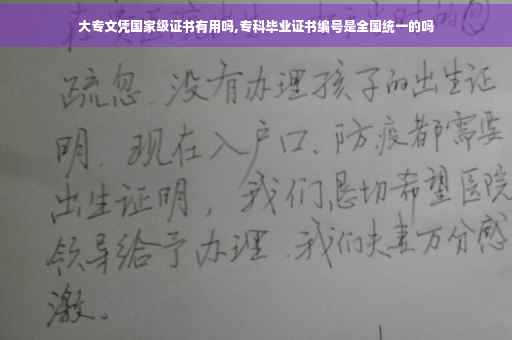 大专文凭国家级证书有用吗,专科毕业证书编号是全国统一的吗
疏忽、没有办理孩子的出生证
明、现在入户口、防疫都需要
出生证明，我们恳切希望医院
领导给予办理、我们夫妻万分感
激。